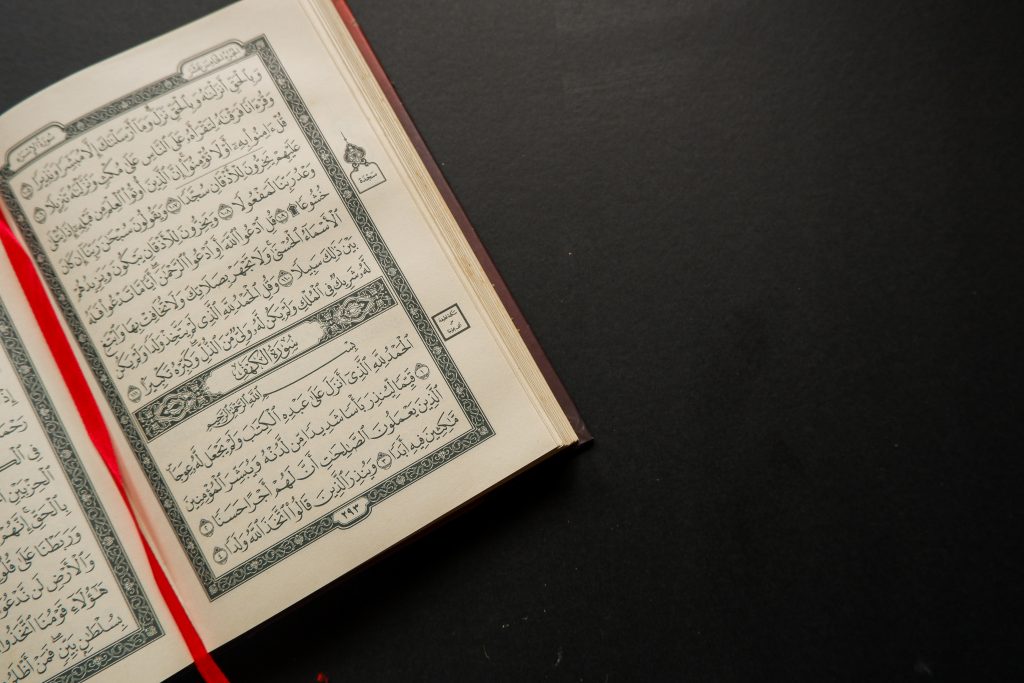 الجزء الخامس عشر
سورة الإسراء
وَبِٱلْحَقِّ أَنزَلْنَٰهُ وَبِٱلْحَقِّ نَزَلَ ۗ وَمَآ أَرْسَلْنَٰكَ إِلَّا مُبَشِّرًا وَنَذِيرًا ١٠٥
وَقُرْءَانًا فَرَقْنَٰهُ لِتَقْرَأَهُۥ عَلَى ٱلنَّاسِ عَلَىٰ مُكْثٍ وَنَزَّلْنَٰهُ تَنزِيلًا ١٠٦
قُلْ ءَامِنُوا۟ بِهِۦٓ أَوْ لَا تُؤْمِنُوٓا۟ ۚ إِنَّ ٱلَّذِينَ أُوتُوا۟ ٱلْعِلْمَ مِن قَبْلِهِۦٓ إِذَا يُتْلَىٰ
عَلَيْهِمْ يَخِرُّونَ لِلْأَذْقَانِ سُجَّدًا ١٠٧ وَيَقُولُونَ سُبْحَٰنَ رَبِّنَآ إِن كَانَ
وَعْدُ رَبِّنَا لَمَفْعُولًا ١٠٨ وَيَخِرُّونَ لِلْأَذْقَانِ يَبْكُونَ وَيَزِيدُهُمْ
خُشُوعًا ۩ ١٠٩ قُلِ ٱدْعُوا۟ ٱللَّهَ أَوِ ٱدْعُوا۟ ٱلرَّحْمَٰنَ ۖ أَيًّا مَّا تَدْعُوا۟ فَلَهُ
ٱلْأَسْمَآءُ ٱلْحُسْنَىٰ ۚ وَلَا تَجْهَرْ بِصَلَاتِكَ وَلَا تُخَافِتْ بِهَا وَٱبْتَغِ
بَيْنَ ذَٰلِكَ سَبِيلًا ١١٠ وَقُلِ ٱلْحَمْدُ لِلَّهِ ٱلَّذِى لَمْ يَتَّخِذْ وَلَدًا وَلَمْ يَكُن
لَّهُۥ شَرِيكٌ فِى ٱلْمُلْكِ وَلَمْ يَكُن لَّهُۥ وَلِىٌّ مِّنَ ٱلذُّلِّ ۖ وَكَبِّرْهُ تَكْبِيرًۢا ١١١
سُورَةُ ٱلْكَهْفِ
بِسْمِ ٱللَّهِ ٱلرَّحْمَٰنِ ٱلرَّحِيمِ
ٱلْحَمْدُ لِلَّهِ ٱلَّذِىٓ أَنزَلَ عَلَىٰ عَبْدِهِ ٱلْكِتَٰبَ وَلَمْ يَجْعَل لَّهُۥ عِوَجَا ۜ
١ قَيِّمًا لِّيُنذِرَ بَأْسًا شَدِيدًا مِّن لَّدُنْهُ وَيُبَشِّرَ ٱلْمُؤْمِنِينَ
ٱلَّذِينَ يَعْمَلُونَ ٱلصَّٰلِحَٰتِ أَنَّ لَهُمْ أَجْرًا حَسَنًا ٢
مَّٰكِثِينَ فِيهِ أَبَدًا ٣ وَيُنذِرَ ٱلَّذِينَ قَالُوا۟ ٱتَّخَذَ ٱللَّهُ وَلَدًا ٤
٢٩٣
سَجْدَة
إِذْ
رَحْمَةً
فِى
ٱلْحِزْبَيْنِ
بِٱلْحَقِّ ۚ إِنَّهُمْ
وَرَبَطْنَا عَلَىٰ
وَٱلْأَرْضِ لَن نَّدْعُوَا۟
هَٰٓؤُلَآءِ قَوْمُنَا ٱتَّخَذُوا۟
بِسُلْطَٰنٍۭ بَيِّنٍ ۖ فَمَنْ